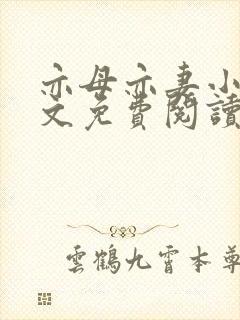 亦母亦妻小
文免費閱讀
雲鶴九霄本尊